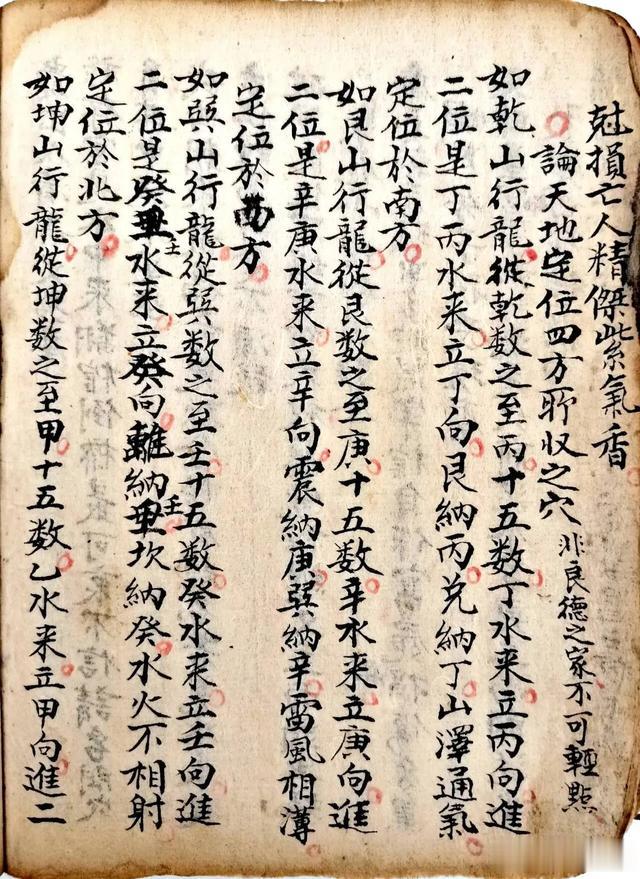 尅損亡人精傑紫氣香
論天地定位四方聊收之穴 非良德之家不可輕點
如乾山行龍從乾數之至丙十五数丁水来立丙向進
二位是丁丙水来立丁向艮納丙兌納丁山澤通氣
定位於南方
如艮山行龍從艮数之至庚十五数辛水来立庚向進
二位是辛庚水来立辛向震納庚巽納辛雷風相薄
定位於西方
如巽山行龍從巽数之至壬十五数癸水来立壬向進
二位是癸壬水来立癸向離納壬坎納癸水火不相射
定位於北方
如坤山行龍從坤数之至甲十五数乙水来立甲向進二